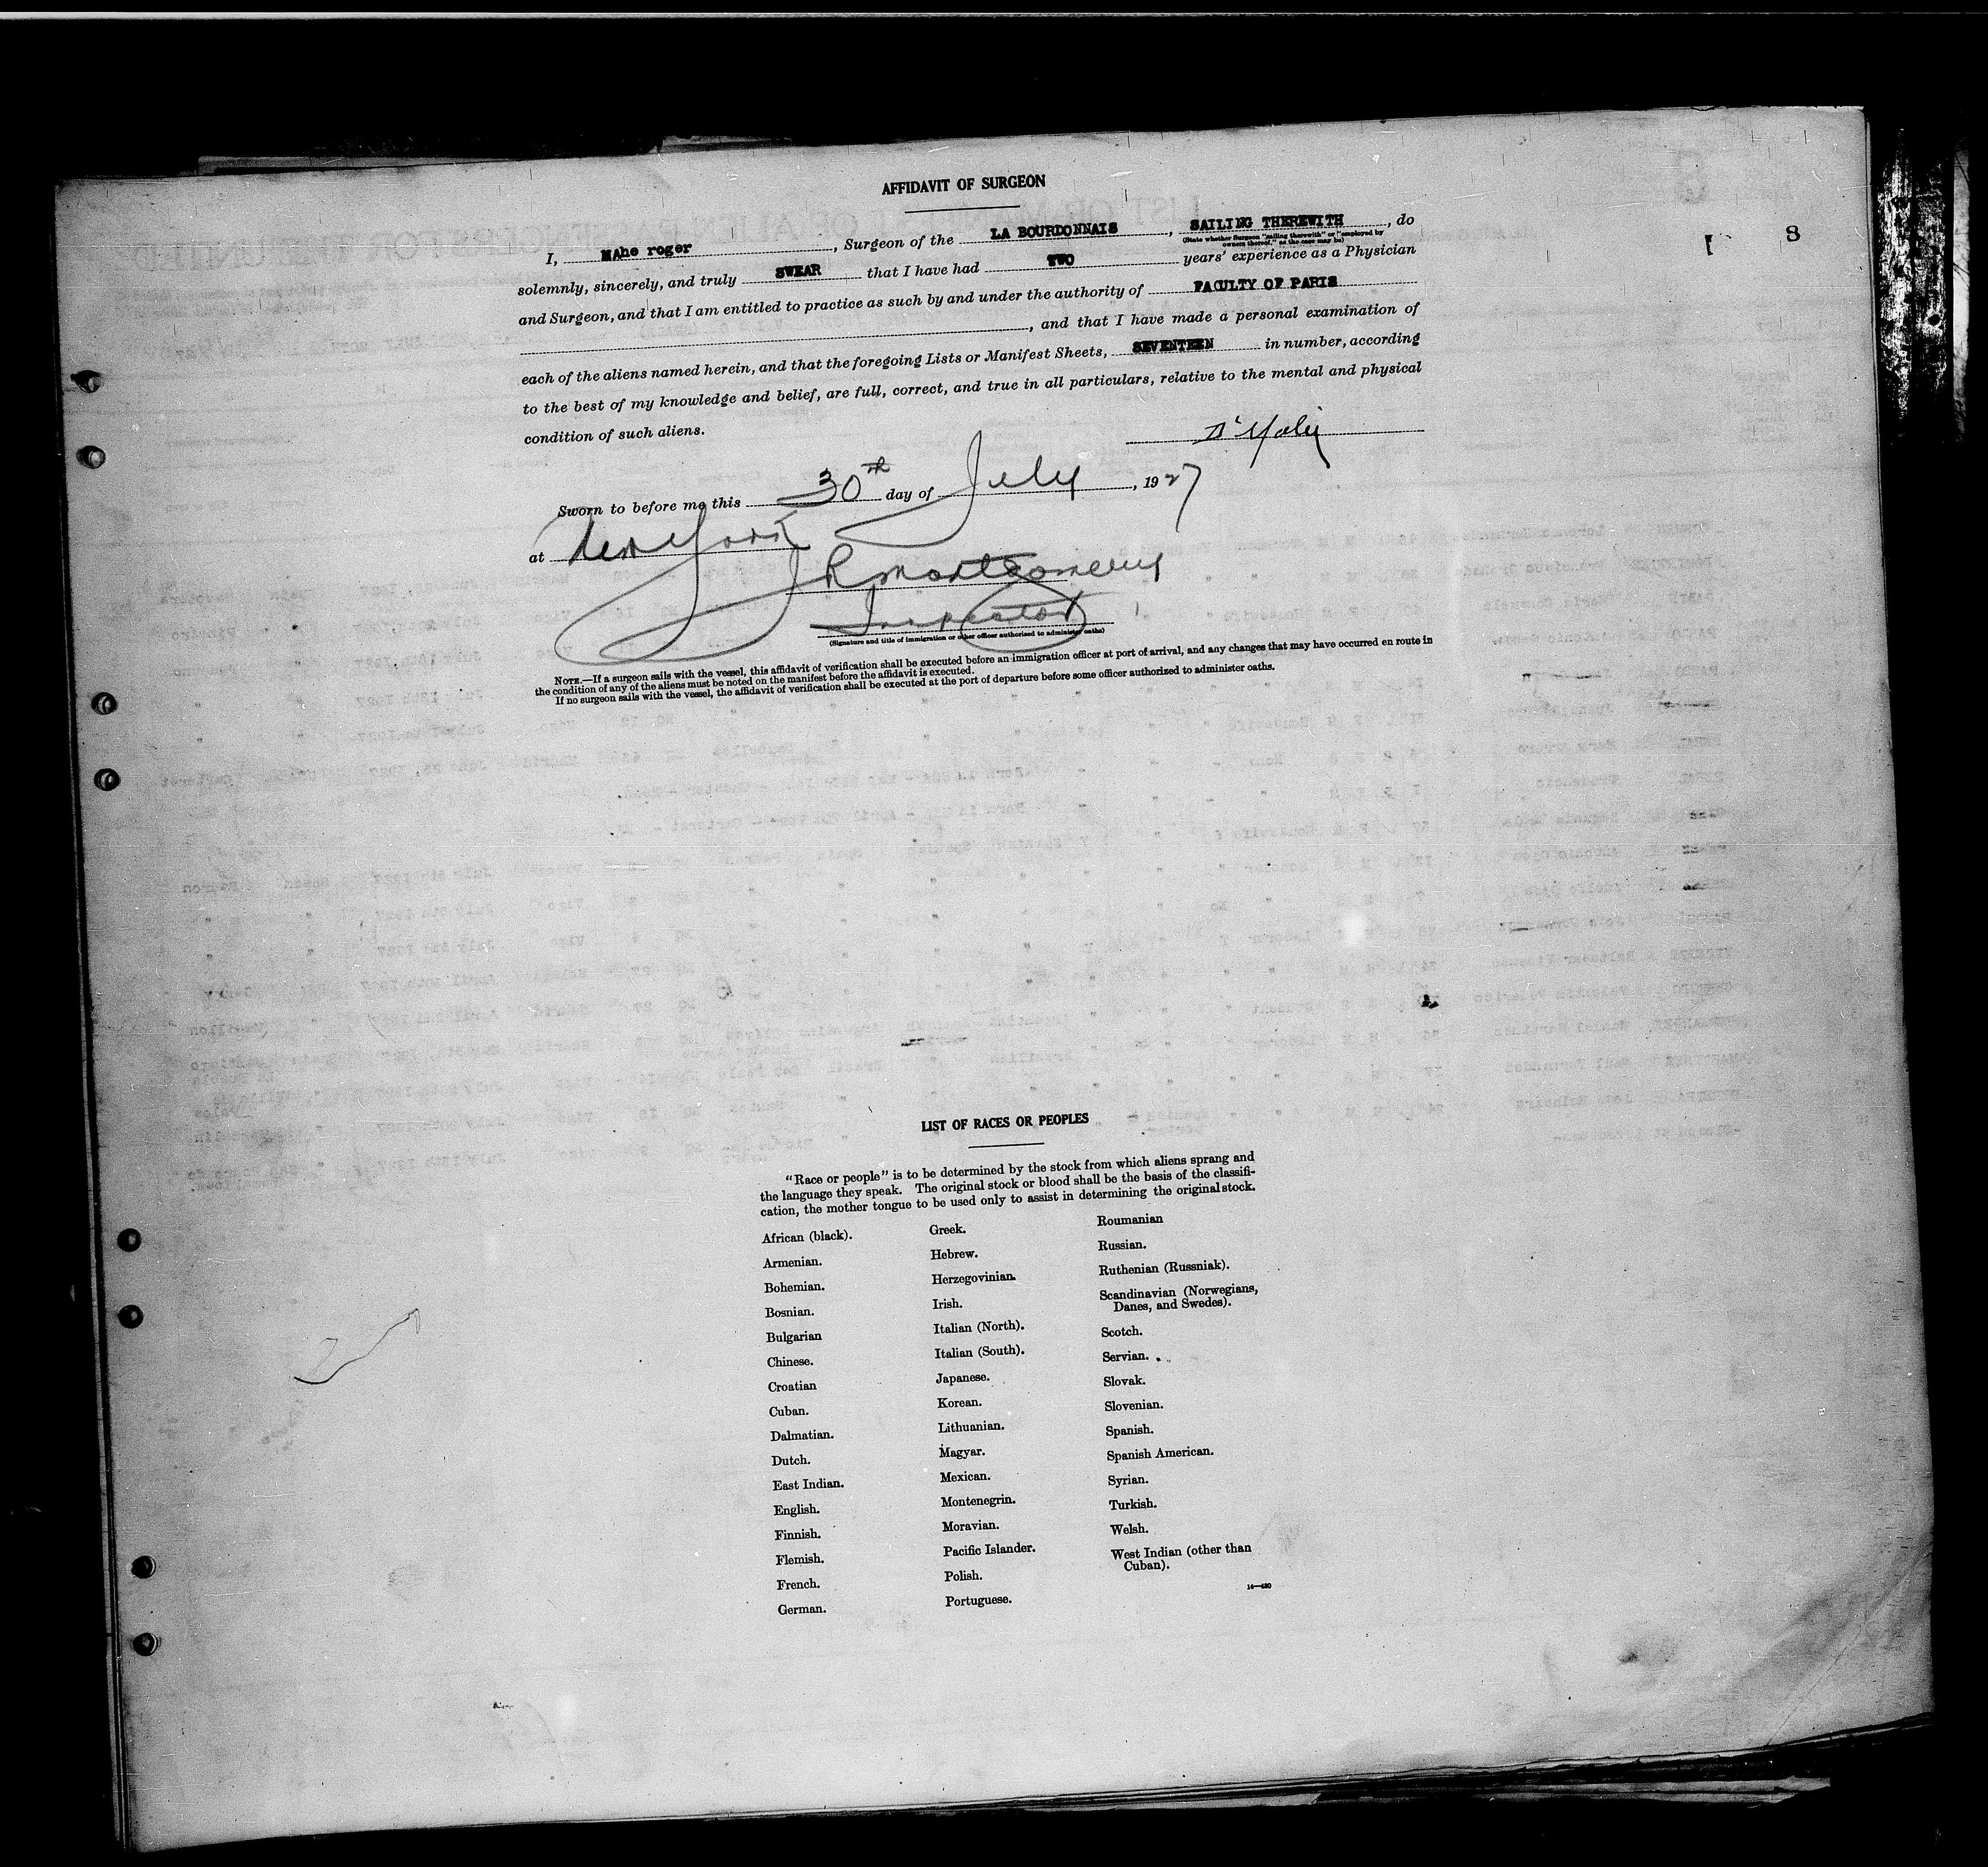 AFFIDAVIT OF SURGEON
I, MAhe roger, Surgeon of the LA BOURDONNAIS, SAILING THEREWITH, do
(State whether Surgeon "sailing therewith" or "employed by
owners thereof," as the case may be)
I 8
solemnly, sincerely, and truly SWEAR that I have had TWO years' experience as a Physician
and Surgeon, and that I am entitled to practice as such by and under the authority of FACULTY OF PARIS
, and that I have made a personal examination of
each of the aliens named herein, and that the foregoing Lists or Manifest Sheets, SEVENTEEN in number, according
to the best of my knowledge and belief, are full, correct, and true in all particulars, relative to the mental and physical
condition of such aliens.
Sworn to before me this 30th day of July, 1927
at New York
JR Montgomery
Inspector
(Signature and title of immigration or other officer authorized to administer oaths)
NOTE.—If a surgeon sails with the vessel, this affidavit of verification shall be executed before an immigration officer at port of arrival, and any changes that may have occurred en route in
the condition of any of the aliens must be noted on the manifest before the affidavit is executed.
If no surgeon sails with the vessel, the affidavit of verification shall be executed at the port of departure before some officer authorized to administer oaths.
LIST OF RACES OR PEOPLES
"Race or people" is to be determined by the stock from which aliens sprang and
the language they speak. The original stock or blood shall be the basis of the classifi-
cation, the mother tongue to be used only to assist in determining the original stock.
African (black).
Armenian.
Bohemian.
Bosnian.
Bulgarian
Chinese.
Croatian
Cuban.
Dalmatian.
Dutch.
East Indian.
English.
Finnish.
Flemish.
French.
German.
Greek.
Hebrew.
Herzegovinian.
Irish.
Italian (North).
Italian (South).
Japanese.
Korean.
Lithuanian.
Magyar.
Mexican.
Montenegrin.
Moravian.
Pacific Islander.
Polish.
Portuguese.
Roumanian
Russian.
Ruthenian (Russniak).
Scandinavian (Norwegians,
Danes, and Swedes).
Scotch.
Servian.
Slovak.
Slovenian.
Spanish.
Spanish American.
Syrian.
Turkish.
Welsh.
West Indian (other than
Cuban).
14—430